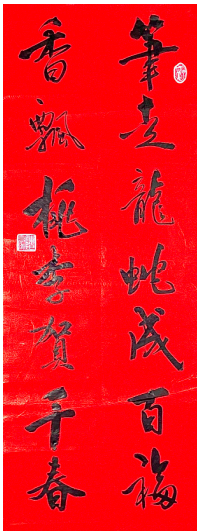 筆走龍蛇成百福
香飄桃李賀千春